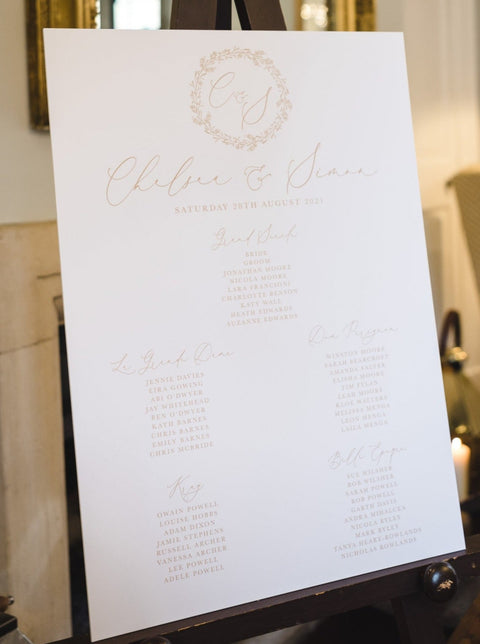 C & S
Chelsea & Simon
SATURDAY 28TH AUGUST 2021
Grand Siècle
BRIDE
GROOM
JONATHAN MOORE
NICOLA MOORE
LARA FRANCIONI
CHARLOTTE BEASON
KATY WALL
HEATH EDWARDS
SUZANNE EDWARDS
Le Grand Dame
JENNIE DAVIES
LIRA GOWING
ABI O'DWYER
JAY WHITEHEAD
BEN O'DWYER
KATH BARNES
CHRIS BARNES
EMILY BARNES
CHRIS MCBRIDE
Dom Perignon
WINSTON MOORE
SARAH BEARCROFT
AMANDA SALTER
ELISHA MOORE
TIM
LEAH MOORE
KLOE WALTERS
MELISSA MENGA
LEON MENGA
LAILA MENGA
Krug
OWAIN POWELL
LOUISE HOBBS
ADAM DIXON
JAMIE STEPHENS
RUSSELL ARCHER
VANESSA ARCHER
LEE POWELL
ADELE POWELL
Belle Epoque
SUE WILSHER
ROB WILSHER
SARAH POWELL
ROB POWELL
GARTH DAVIS
ANDREA MIHALCEA
NICOLA RYLEY
MARK RYLEY
TANYA HEARY-ROWLANDS
NICHOLAS ROWLANDS